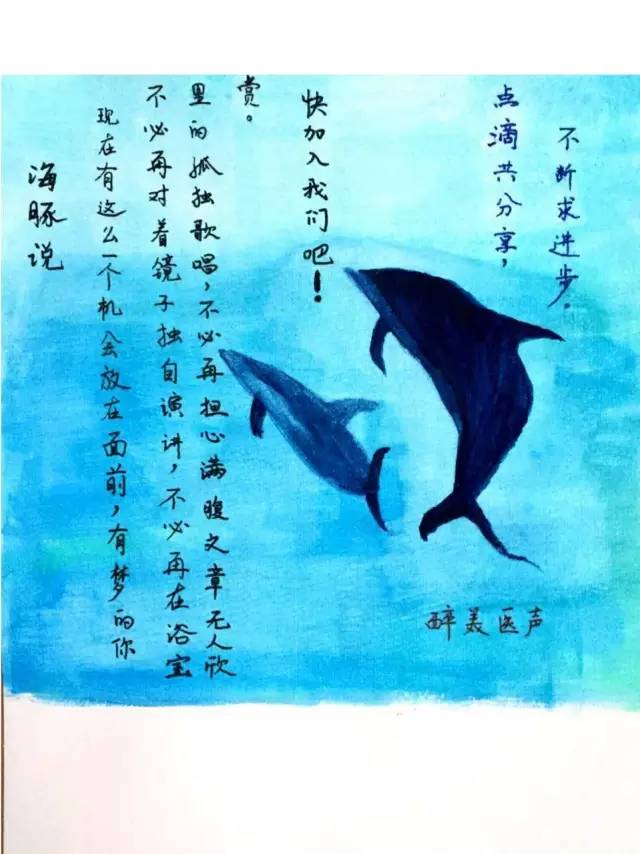 海豚说
现在有这么一个机会放在面前，有梦的你
不必再对着镜子独自演讲，不必再在浴室
里的孤独歌唱，不必再担心满腹文章无人欣
赏。
快加入我们吧！
点滴共分享，
不断求进步.
醉美医声